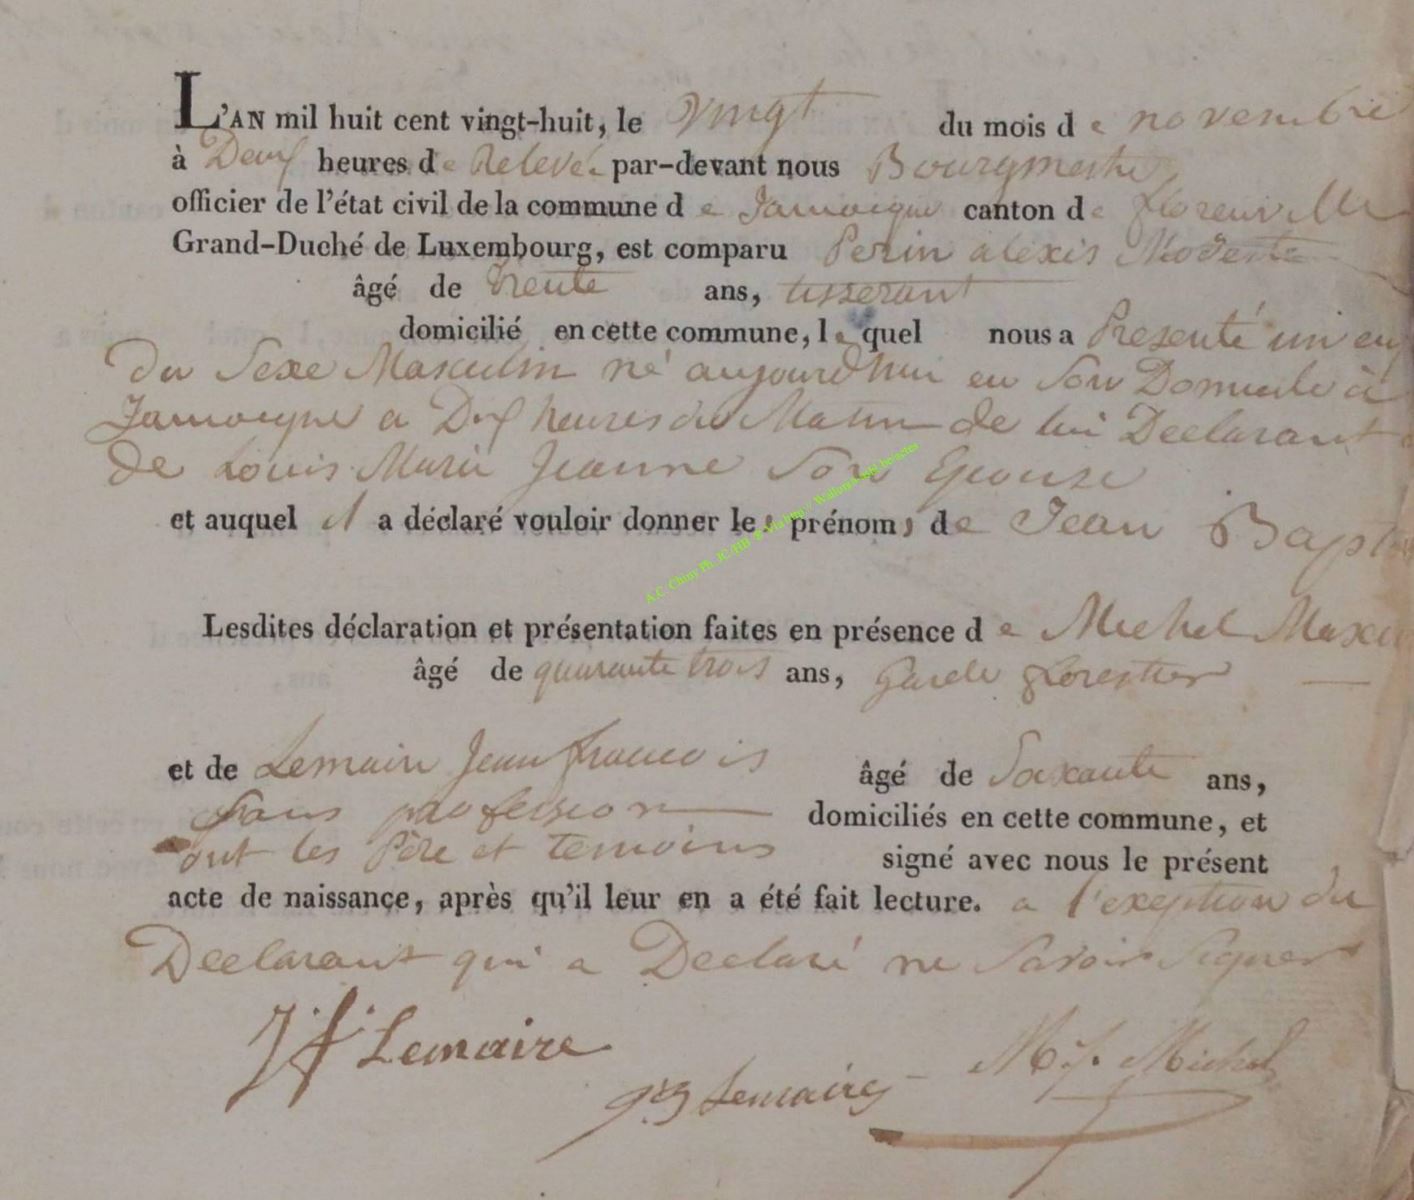 L'AN mil huit cent vingt-huit, le vingt du mois de novembre
à Deux heures de Relevée par-devant nous Bourgmestre
officier de l'état civil de la commune de Jamoigne canton de florenville
Grand-Duché de Luxembourg, est comparu Perin alexis Modeste
âgé de trente ans, tisserant
domicilié en cette commune, lequel nous a Presenté un en
du Sexe Masculin né aujourdhui en Son Domicile à
Jamoigne a Dix heures du Matin de lui Declarant
De Louis Marie Jeanne Son Epouse
et auquel il a déclaré vouloir donner les prénoms de Jean Baptis
Lesdites déclaration et présentation faites en présence de Michel Maxi
âgé de quarante trois ans, Garde florestier
et de Lemaire Jean francois âgé de Soixante ans,
Sans profession domiciliés en cette commune, et
ont les Père et temoins signé avec nous le présent
acte de naissance, après qu'il leur en a été fait lecture. a l'exeption du
Declarant qui a Declaré ne Savoir Signer
J f Lemaire
Lemaire
M. J. Michel